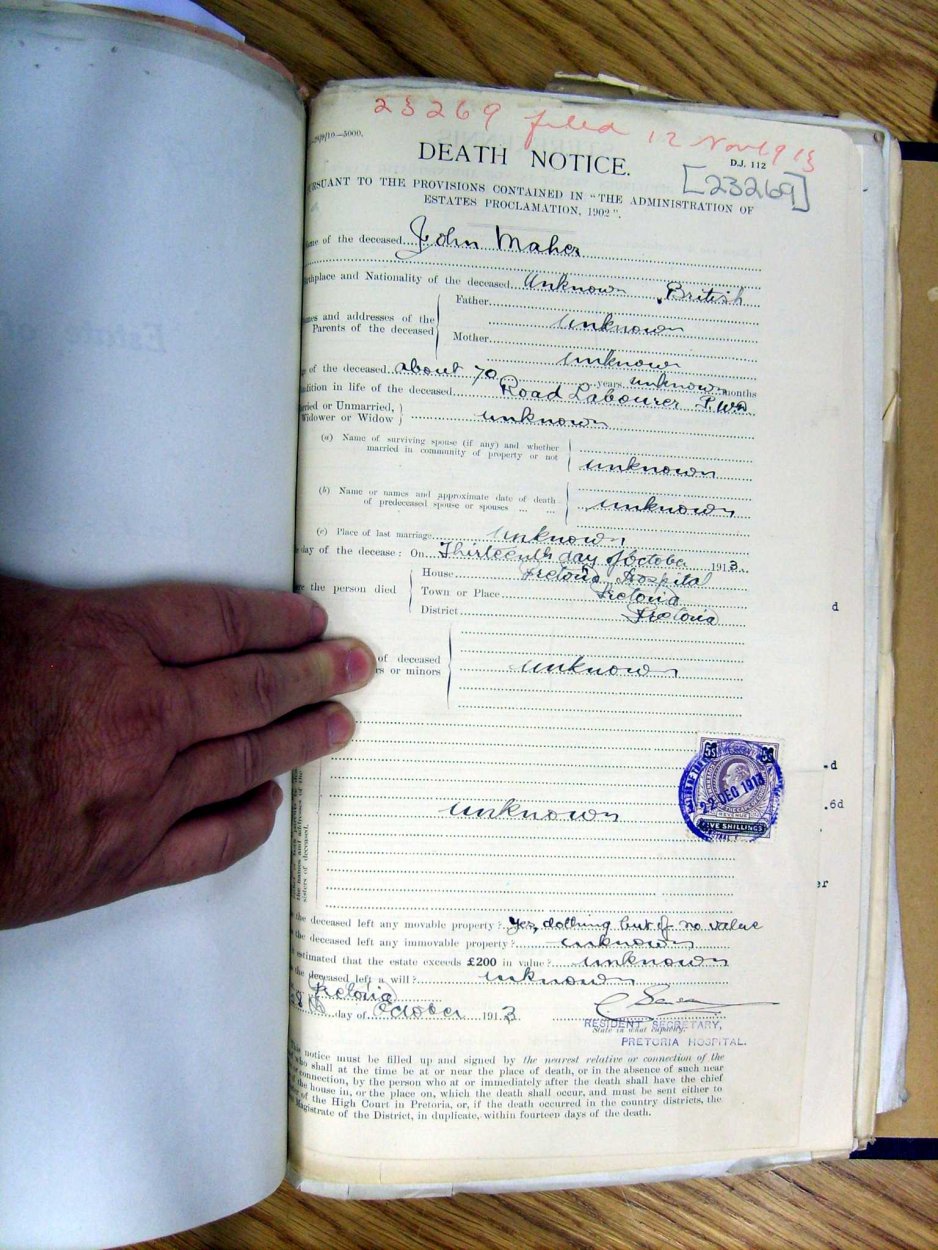 23269 filed 12 Nov 1913
—5000.
DEATH NOTICE.
D.J. 112
[23269]
PURSUANT TO THE PROVISIONS CONTAINED IN "THE ADMINISTRATION OF
ESTATES PROCLAMATION, 1902".
me of the deceased John Maher
irthplace and Nationality of the deceased Unknown British
Father
mes and addresses of the unknown
Parents of the deceased
Mother
unknown
of the deceased about 70 years unknown months
ndition in life of the deceased Road Labourer P.W.D.
arried or Unmarried,
Widower or Widow unknown
(a) Name of surviving spouse (if any) and whether
married in community of property or not unknown
(b) Name or names and approximate date of death
of predeceased spouse or spouses ... ... unknown
(c) Place of last marriage unknown
day of the decease: On Thirteenth day of October 1913.
House Pretoria Hospital
re the person died Town or Place Pretoria
District Pretoria
of deceased
rs or minors unknown
d
-d
22 DEC 1913
FIVE SHILLINGS
REVENUE
.6d
unknown
er
the deceased left any movable property? Yes, clothing but of no value
the deceased left any immovable property? unknown
estimated that the estate exceeds £200 in value? unknown
the deceased left a will? unknown
Pretoria
day of October 1913
RESIDENT SECRETARY,
State in what capacity.
PRETORIA HOSPITAL.
his notice must be filled up and signed by the nearest relative or connection of the
who shall at the time be at or near the place of death, or in the absence of such near
connection, by the person who at or immediately after the death shall have the chief
the house in, or the place on, which the death shall occur, and must be sent either to
of the High Court in Pretoria, or, if the death occurred in the country districts, the
Magistrate of the District, in duplicate, within fourteen days of the death.